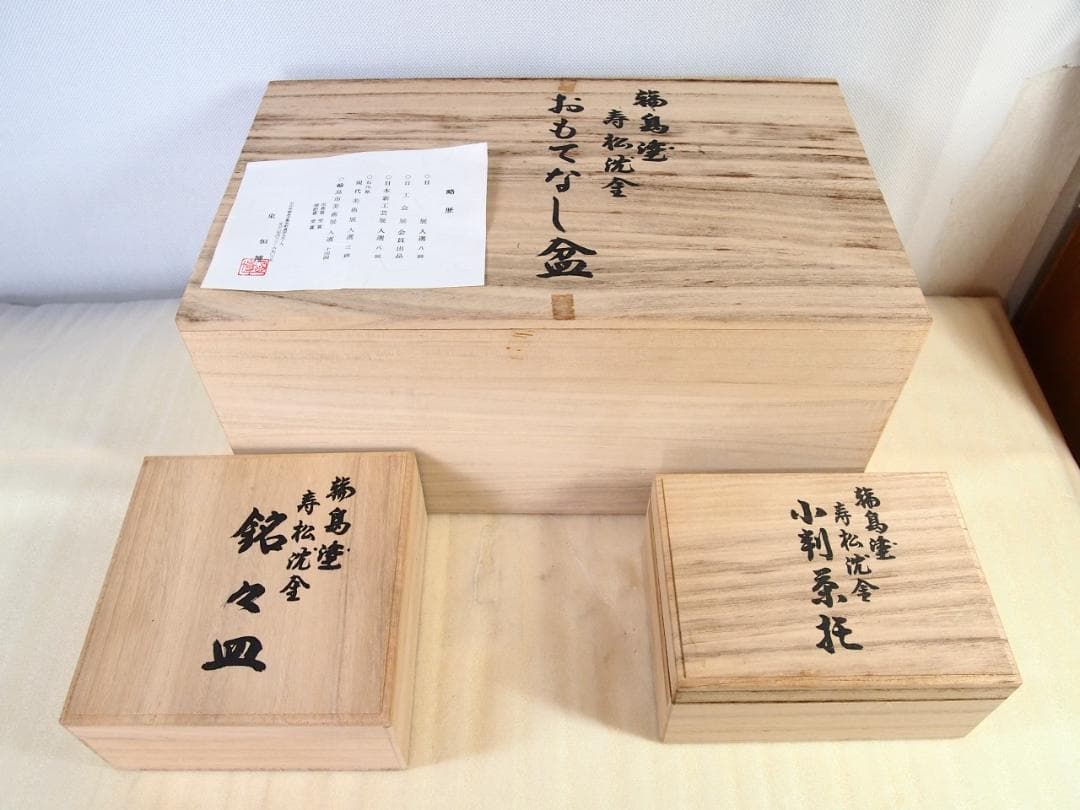 輪島塗
寿松沈金
おもてなし盆
略歴
○日展入選八回
○日工会展会員出品
○日本新工芸展入選八回
○石川県
現代美術展入選二回
○輪島市美術展入選十四回
輪島塗
寿松沈金
銘々皿
輪島塗
寿松沈金
小判茶托